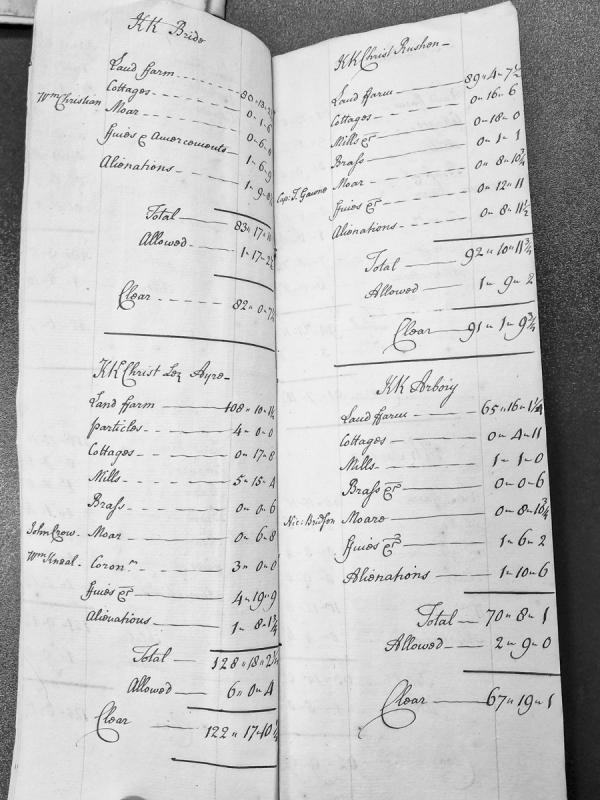 KK Bride
Land ffarm - - - 80 " 13 "
Cottages - - - 0 " 1 - 6
Wm Christian Moar - - - 0 - 6 -
ffines & Amercements - 1 - 6 - 9
Alienations - - - 1 - 9 -
Total - 83 " 17 "
Allowed - 1 - 17 - 2½
Clear - - - 82 " 0 - 7½
KK Christ Lez Ayre -
Land ffarm - 108 " 10 - 1½
Particles - 4 - 0 - 0
Cottages - 0 - 17 - 8
Mills - 5 - 15 - 4
Brass - 0 - 0 - 6
John Crow - Moar - 0 - 6 - 8
Wm Kneal - Coronr - 3 - 0 - 0
ffines &c - 4 - 19 - 9
Alienations - 1 - 8 - 1¾
Total - 128 " 18 " 2¼
Allowed - 6 " 0 - 4
Clear - 122 " 17 - 10¼
KK Christ Rushen -
Land ffarm - 89 " 4 - 7½
Cottages - 0 - 16 - 6
Mills &c - 0 - 18 - 0
Brass - 0 - 1 - 1
Cap: T. Gawne Moar - 0 " 8 - 10¾
ffines &c - 0 - 12 " 11
Alienations - 0 - 8 - 11½
Total - 92 " 10 " 11¾
Allowed - 1 - 9 - 2
Clear - 91 - 1 - 9¾
KK Arbory
Land ffarm - 65 " 16 - 1¼
Cottages - 0 - 4 - 11
Mills - 1 - 1 - 0
Brass &c - 0 - 0 - 6
Nic: Bridson Moare - 0 - 8 - 10¾
ffines &c - 1 - 6 - 2
Alienations - 1 - 10 - 6
Total - 70 " 8 - 1
Allowed - 2 - 9 - 0
Clear - 67 " 19 - 1